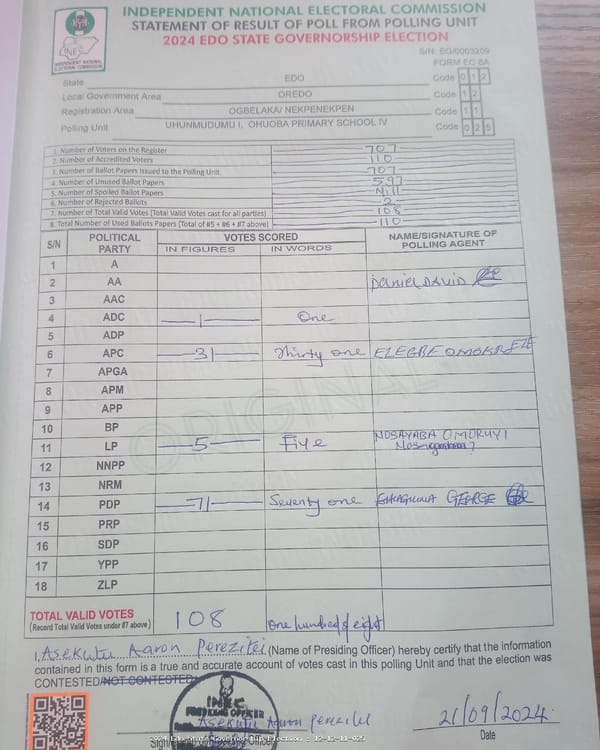 INDEPENDENT NATIONAL ELECTORAL COMMISSION
STATEMENT OF RESULT OF POLL FROM POLLING UNIT
2024 EDO STATE GOVERNORSHIP ELECTION
S/N: EG/0003209
FORM EC 8A
INEC
INDEPENDENT NATIONAL ELECTORAL COMMISSION
State EDO Code 0 1 2
Local Government Area OREDO Code 1 2
Registration Area OGBELAKA/ NEKPENEKPEN Code 1 1
Polling Unit UHUNMUDUMU I, OHUOBA PRIMARY SCHOOL IV Code 0 2 5
1. Number of Voters on the Register 707
2. Number of Accredited Voters 110
3. Number of Ballot Papers Issued to the Polling Unit 707
4. Number of Unused Ballot Papers 597
5. Number of Spoiled Ballot Papers Nill
6. Number of Rejected Ballots 2
7. Number of Total Valid Votes (Total Valid Votes cast for all parties) 108
8. Total Number of Used Ballots Papers (Total of #5 + #6 + #7 above) 110
S/N POLITICAL PARTY VOTES SCORED NAME/SIGNATURE OF POLLING AGENT
IN FIGURES IN WORDS
1 A
2 AA Daniel DAVID
3 AAC
4 ADC 1 One
5 ADP
6 APC 31 Thirty one
7 APGA
8 APM
9 APP
10 BP
11 LP 5 Five NOSAYABA OMORUYI
12 NNPP
13 NRM
14 PDP 71 Seventy one GEORGE
15 PRP
16 SDP
17 YPP
18 ZLP
ORIGINAL
TOTAL VALID VOTES 108 One hundred & eight
(Record Total Valid Votes under #7 above)
I, Asekutu Aaron Perezitei (Name of Presiding Officer) hereby certify that the information
contained in this form is a true and accurate account of votes cast in this polling Unit and that the election was
CONTESTED/NOT CONTESTED.
INEC
PRESIDING OFFICER
Asekutu Aaron Perezitei
21/09/2024
Date
2024 Edo State Governorship Election - 12-12-11-025